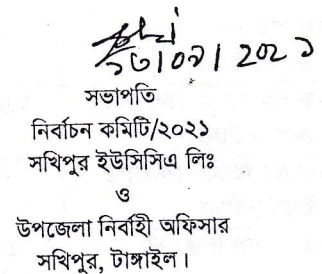 সভাপতি
নির্বাচন কমিটি/২০২১
সখিপুর ইউসিসিএ লিঃ
ও
উপজেলা নির্বাহী অফিসার
সখিপুর, টাঙ্গাইল।